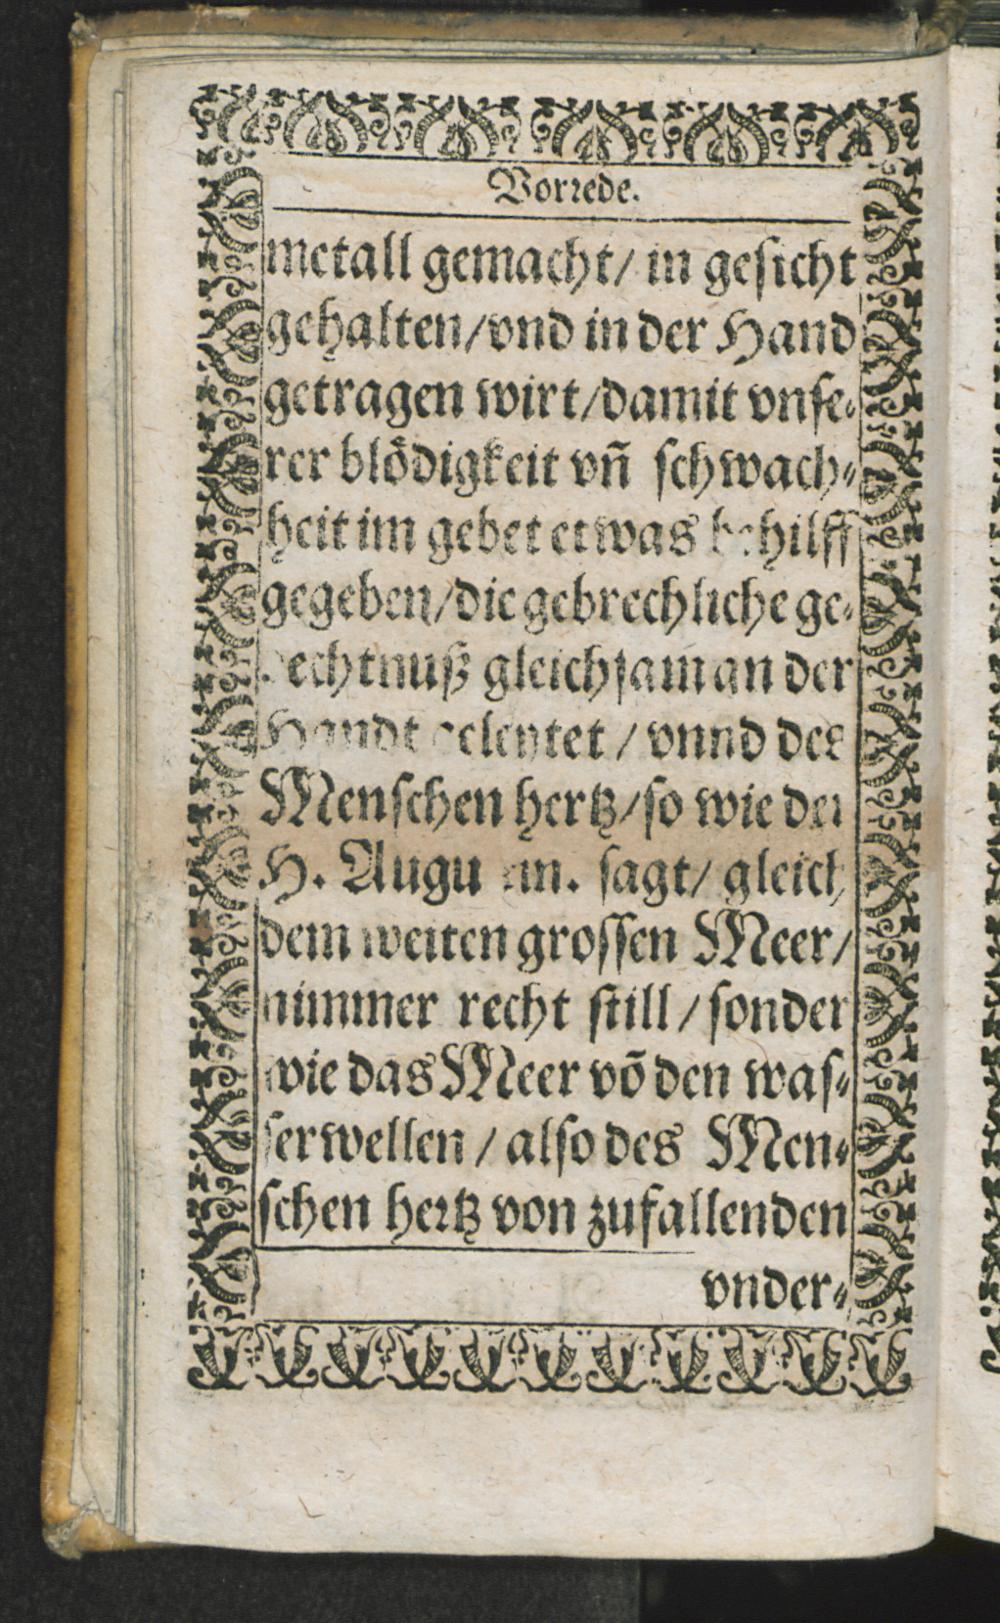 Vorrede.
metall gemacht/ in gesicht
gehalten/vnd in der Hand
getragen wirt/damit vnse-
rer blödigkeit vñ schwach-
heit im gebet etwas behilff
gegeben/die gebrechliche ge-
dechtnuß gleichsam an der
Handt geleytet / vnnd des
Menschen hertz/so wie der
H. Augustin. sagt/ gleich
dem weiten grossen Meer/
nimmer recht still / sonder
wie das Meer võ den was-
serwellen / also des Men-
schen hertz von zufallenden
vnder-